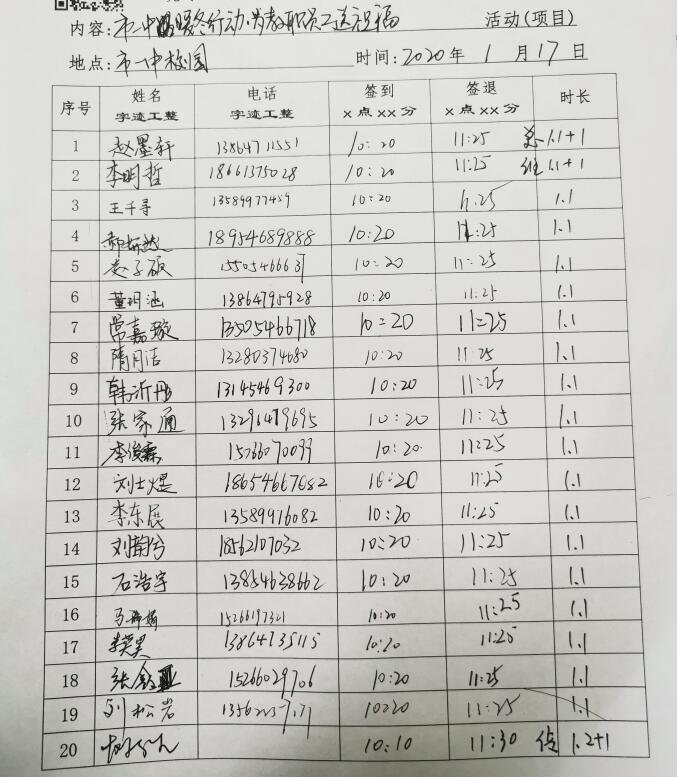 内容: 市一中 暖冬行动·为教职员工送祝福 活动(项目)
地点: 市一中校园 时间: 2020 年 1 月 17 日
序号 姓名 字迹工整 电话 字迹工整 签到 X 点 XX 分 签退 X 点 XX 分 时长
1 赵墨轩 13864711551 10:20 11:25 1.1+1
2 李明哲 18661375028 10:20 11:25 1.1+1
3 王千寻 13589977459 10:20 11:25 1.1
4 18954689888 10:20 11:25 1.1
5 10:20 11:25 1.1
6 董玥涵 13864795928 10:20 11:25 1.1
7 常嘉璇 13505466718 10:20 11:25 1.1
8 隋月洁 13280374680 10:20 11:25 1.1
9 韩沂彤 13145469300 10:20 11:25 1.1
10 张家通 13296479695 10:20 11:25 1.1
11 李俊霖 15266070099 10:20 11:25 1.1
12 刘士煜 18654667682 10:20 11:25 1.1
13 李东展 13589976082 10:20 11:25 1.1
14 18562107032 10:20 11:25 1.1
15 石浩宇 13854638662 10:20 11:25 1.1
16 马 15266197321 10:20 11:25 1.1
17 13864735115 10:20 11:25 1.1
18 张 15266029706 10:20 11:25 1.1
19 刘松岩 10:20 11:25 1.1
20 10:10 11:30 1.2+1